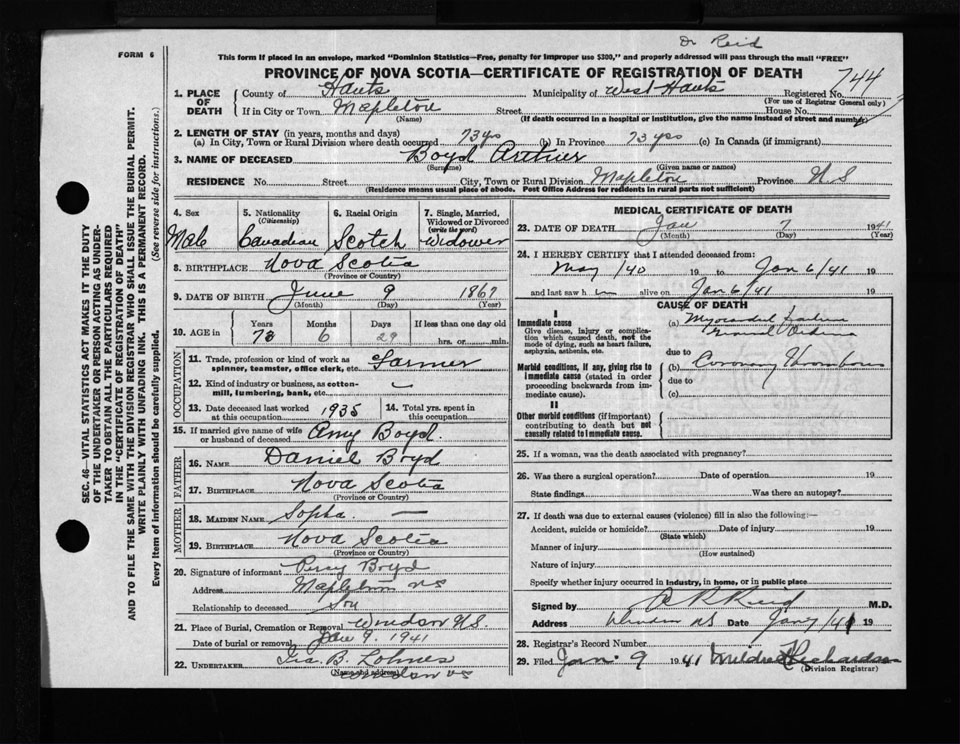 Dr Reid
FORM 6
This form if placed in an envelope, marked "Dominion Statistics—Free, penalty for improper use $300," and properly addressed will pass through the mail "FREE"
PROVINCE OF NOVA SCOTIA—CERTIFICATE OF REGISTRATION OF DEATH
744
SEC. 46—VITAL STATISTICS ACT MAKES IT THE DUTY
OF THE UNDERTAKER OR PERSON ACTING AS UNDER-
TAKER TO OBTAIN ALL THE PARTICULARS REQUIRED
IN THE "CERTIFICATE OF REGISTRATION OF DEATH"
AND TO FILE THE SAME WITH THE DIVISION REGISTRAR WHO SHALL ISSUE THE BURIAL PERMIT.
WRITE PLAINLY WITH UNFADING INK. THIS IS A PERMANENT RECORD.
Every item of information should be carefully supplied. (See reverse side for instructions.)
1. PLACE OF DEATH
County of Hants Municipality of West Hants Registered No.
(For use of Registrar General only)
If in City or Town Mapleton Street House No.
(Name) (If death occurred in a hospital or institution, give the name instead of street and number)
2. LENGTH OF STAY (in years, months and days)
(a) In City, Town or Rural Division where death occurred 73 yrs (b) In Province 73 yrs (c) In Canada (if immigrant)
3. NAME OF DECEASED Boyd Arthur
(Surname) (Given name or names)
RESIDENCE No. Street City, Town or Rural Division Mapleton Province N S
(Residence means usual place of abode. Post Office Address for residents in rural parts not sufficient)
4. Sex Male
5. Nationality (Citizenship) Canadian
6. Racial Origin Scotch
7. Single, Married, Widowed or Divorced (write the word) Widower
8. BIRTHPLACE Nova Scotia
(Province or Country)
9. DATE OF BIRTH June 9 1867
(Month) (Day) (Year)
10. AGE in Years Months Days If less than one day old
73 6 29 hrs. or min.
OCCUPATION
11. Trade, profession or kind of work as spinner, teamster, office clerk, etc. Farmer
12. Kind of industry or business, as cotton-mill, lumbering, bank, etc. —
13. Date deceased last worked at this occupation 1935
14. Total yrs. spent in this occupation
15. If married give name of wife or husband of deceased Amy Boyd.
FATHER
16. NAME Daniel Boyd
17. BIRTHPLACE Nova Scotia
(Province or Country)
MOTHER
18. MAIDEN NAME Sopha. —
19. BIRTHPLACE Nova Scotia
(Province or Country)
20. Signature of informant Percy Boyd
Address Mapleton NS
Relationship to deceased Son
21. Place of Burial, Cremation or Removal Windsor N.S.
Date of burial or removal Jan 9. 1941
22. UNDERTAKER Ira. B. Lohnes
(Name and address) Windsor NS
MEDICAL CERTIFICATE OF DEATH
23. DATE OF DEATH Jan 7 1941
(Month) (Day) (Year)
24. I HEREBY CERTIFY that I attended deceased from:
May /40 19 to Jan 6/41 19
and last saw h im alive on Jan 6/41 19
CAUSE OF DEATH
I
Immediate cause
Give disease, injury or complication which caused death, not the mode of dying, such as heart failure, asphyxia, asthenia, etc.
(a) Myocardial failure
due to
Morbid conditions, if any, giving rise to immediate cause (stated in order proceeding backwards from immediate cause).
(b) Coronary Thrombosis
due to
(c)
II
Other morbid conditions (if important) contributing to death but not causally related to immediate cause.
25. If a woman, was the death associated with pregnancy?
26. Was there a surgical operation? Date of operation 19
State findings Was there an autopsy?
27. If death was due to external causes (violence) fill in also the following:—
Accident, suicide or homicide? Date of injury 19
(State which)
Manner of injury
(How sustained)
Nature of injury
Specify whether injury occurred in industry, in home, or in public place
Signed by Reid M.D.
Address Windsor NS Date Jan 7/41 19
28. Registrar's Record Number
29. Filed Jan. 9 1941 Mildred Richardson
(Division Registrar)